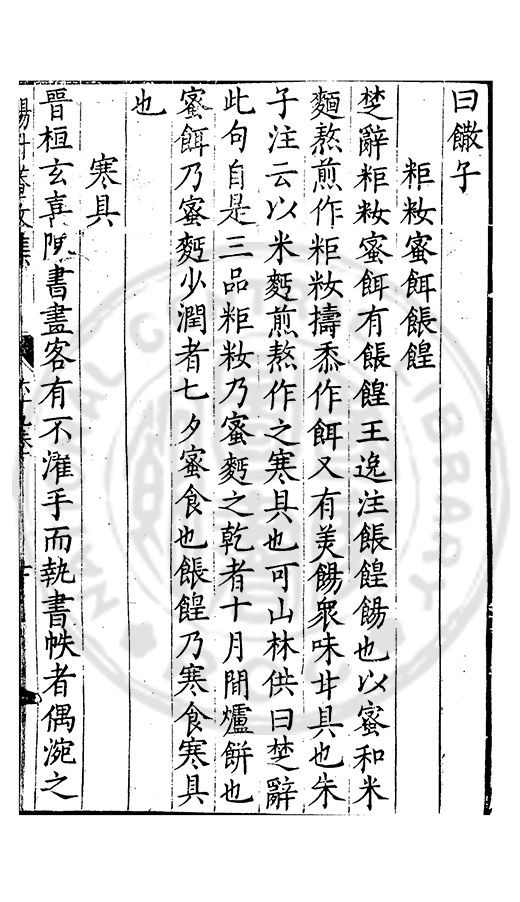 曰饊子
粔籹蜜餌餦餭
楚辭粔籹蜜餌有餦餭王逸注餦餭餳也以蜜和米
麵熬煎作粔籹擣黍作餌又有美餳衆味甘具也朱
子注云以米麪煎熬作之寒具也可山林供曰楚辭
此句自是三品粔籹乃蜜麪之乾者十月間爐餅也
蜜餌乃蜜麪少潤者七夕蜜食也餦餭乃寒食寒具
也
寒具
晉桓玄喜陳書畫客有不濯手而執書帙者偶涴之